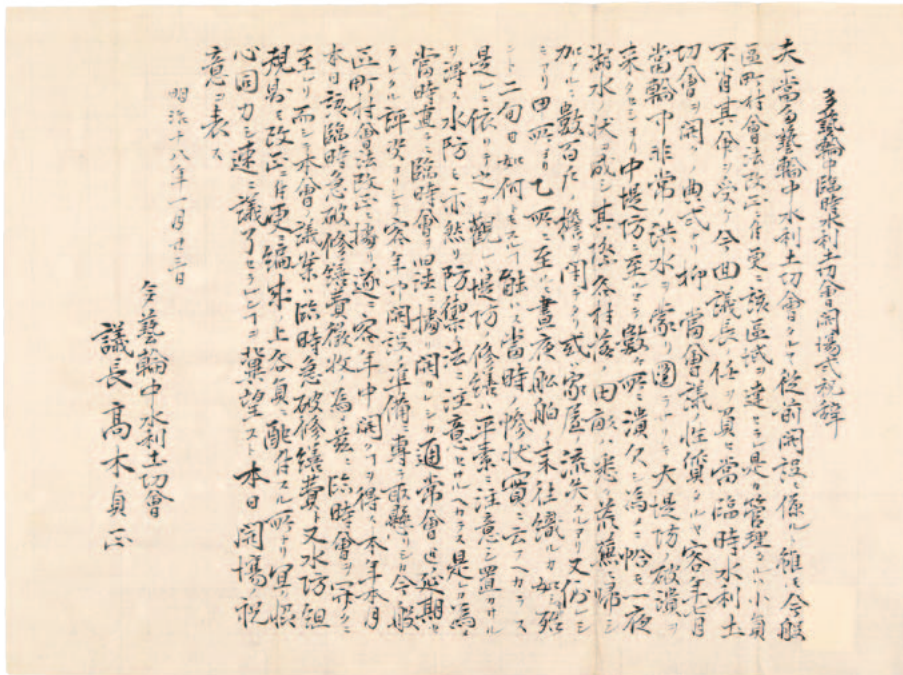 多藝輪中臨時水利土功會開場式祝辞
夫レ當多藝輪中水利土功會タルヤ従前開設ニ係ルト雖モ今般
區町村會法改正ニ付更ニ該區域ヲ達セラレ是カ管理タルハ小貞
不肖其任ヲ受ケ今回議長ノ任ヲ負ヒ當臨時水利土
切會ヲ開クノ典式ナリ抑當會議性質タルヤ客年七月
當輪中非常ノ洪水ヲ蒙リ圖ラスモ大堤防ノ破潰ヲ
来タセシヨリ中堤防ニ至ルマテ数ケ所潰欠シ為メニ恰モ一夜
湖水ノ状ヲ成シ其際各村落ノ田畝ハ悉ク荒蕪ニ帰シ
加フルニ数百ノ橋ヲ閉ラタリ或ハ家屋ノ流失スルアリ又仆レシ
ニアリ甲所ヨリ乙所ニ至ルニ昼夜船舶ノ来往織ルカ如シ殆
ント二旬日如何トモスル能ハス當時ノ惨状實ニ云フヘカラス
是ニ依リテ之ヲ觀レハ堤防ノ修繕ハ平素ニ注意シ置カサル
ヲ得ス水防モ亦然リ防禦ノ法ニ注意セサルヘカラス是カ為メ
當時重ニ臨時會ヲ旧法ニ據リ開カレシカ通常會ハ延期セ
ラレタル評決ヨリシテ客年中開設ノ準備ニ專ラ取懸リシカ今般
區町村會法改正ニ據リ遂ニ客年中開クヲ得ス本年本月
本日該臨時急破修繕費徴收ノ為メ茲ニ臨時會ヲ開クニ
至レリ而シテ本會ノ議案ハ臨時急破修繕費ト又水防組
規則ノ改正ニ付更ニ編制上各員ニ配付スル所ナリ冀クハ
心同力シ速ニ議了セラレン事ヲ冀望スト本日開場ノ祝
意ヲ表ス
明治十八年一月廿三日
多藝輪中水利土功會
議長 髙木貞正